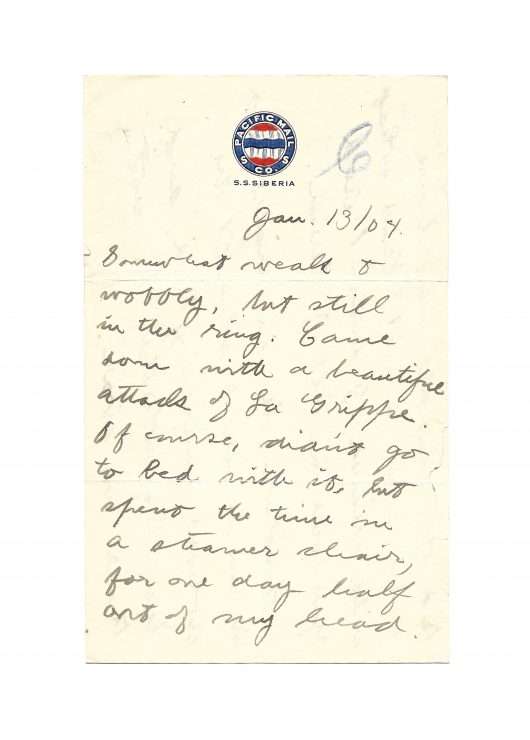 PACIFIC MAIL S S CO.
S.S. SIBERIA
Jan. 13/04.
Somewhat weak &
wobbly, but still
in the ring. Came
down with a beautiful
attack of La Grippe.
Of course, didn't go
to bed with it, but
spent the time in
a steamer chair,
for one day half
out of my head.